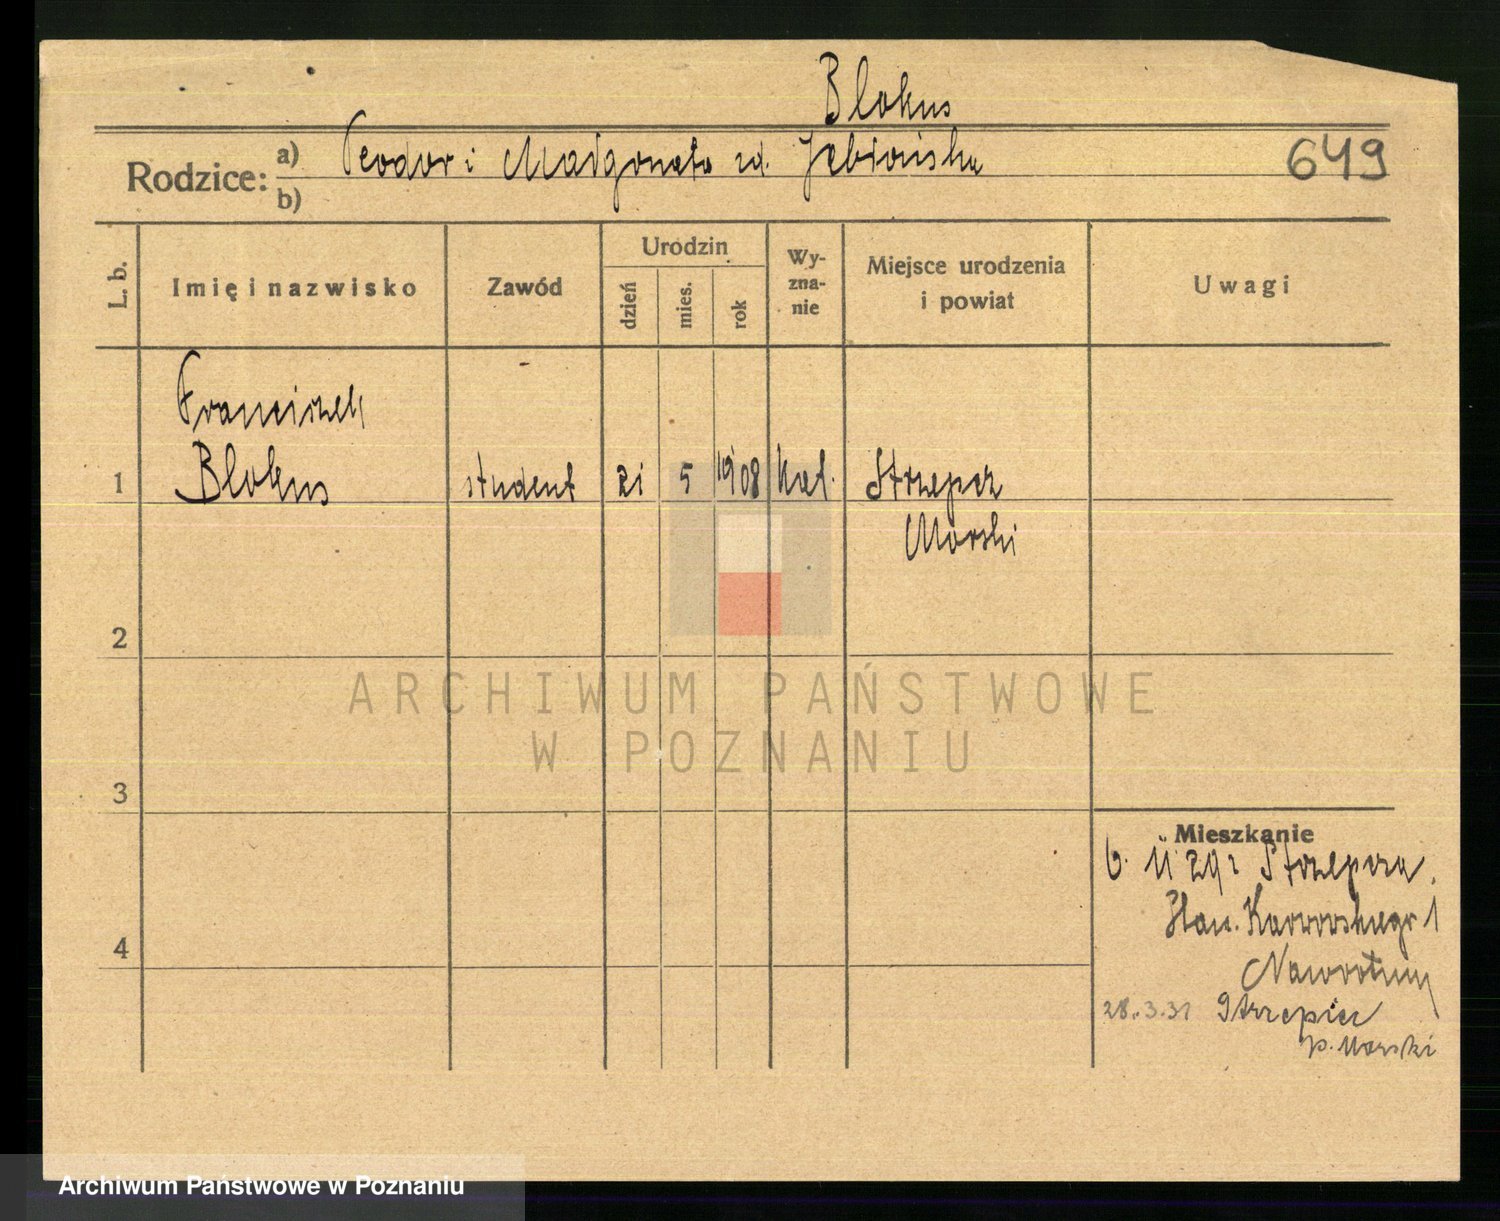 Blokus
649
Rodzice: a) Teodor i Małgorzata zd. Jabłońska
b)
L. b.
Imię i nazwisko
Zawód
Urodzin
dzień
mies.
rok
Wy-
zna-
nie
Miejsce urodzenia
i powiat
Uwagi
Franciszek
1 Blokus student 21 5 1908 kat. Strzepcz
Morski
2
3
4
Mieszkanie
6. 11 29 z Strzepcza.
Stan. Karwowskiego 1
28.3.31 Strzepicz
p. Morski
ARCHIWUM PAŃSTWOWE
W POZNANIU
Archiwum Państwowe w Poznaniu